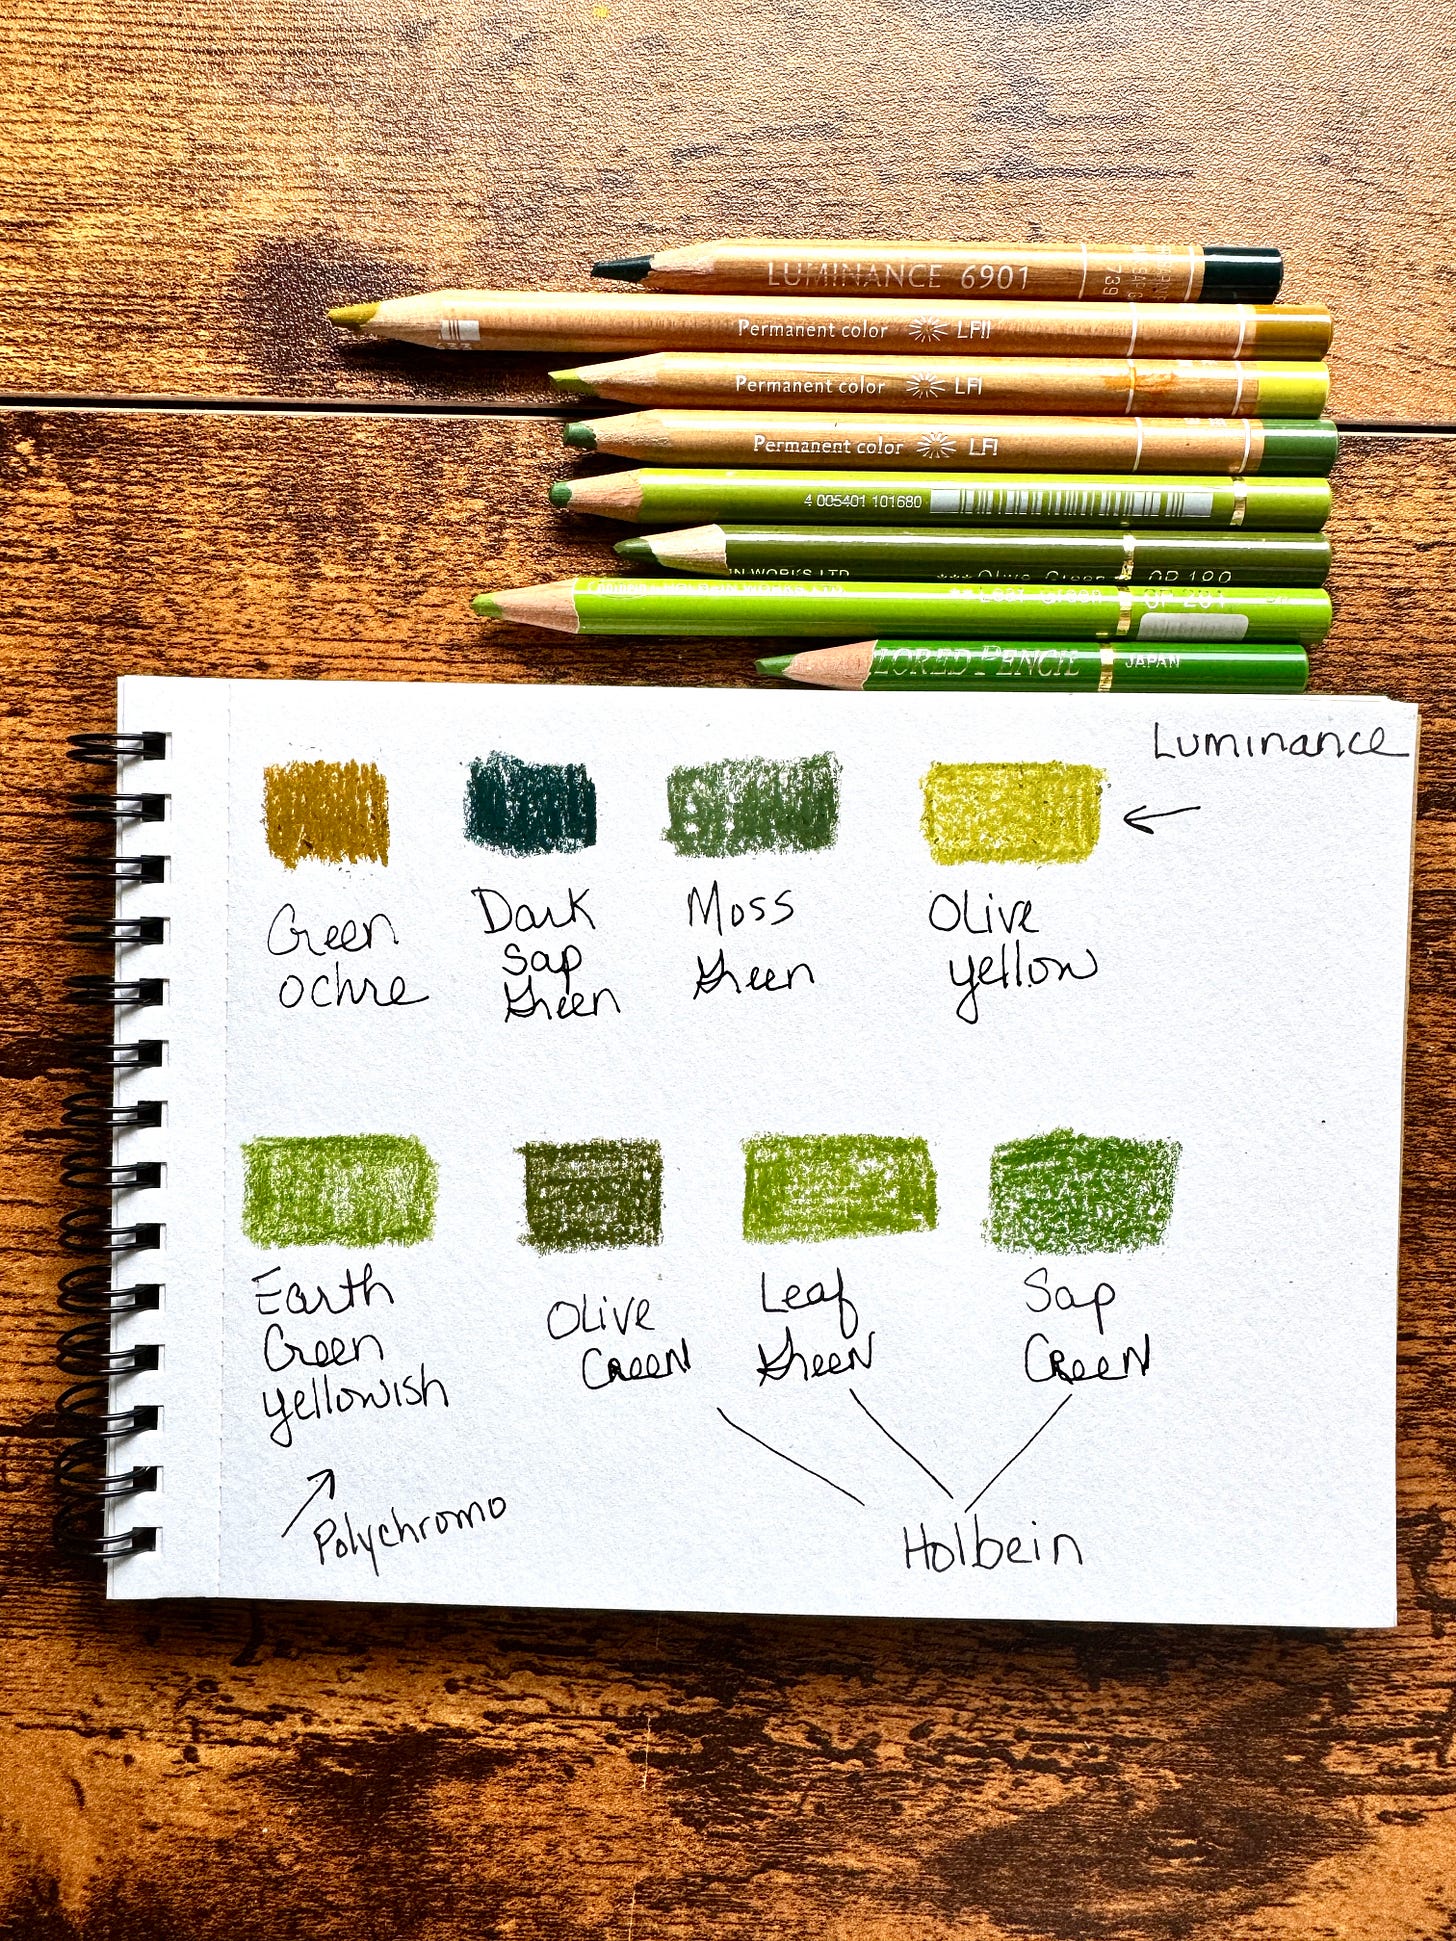 LUMINANCE 6901
739
Permanent color LFII
Permanent color LFI
Permanent color LFI
4 005401 101680
WORKS LTD *** Olive Green OP 190
HOLBEIN WORKS LTD ** Leaf Green OP 261
LORED PENCIL JAPAN
Luminance
Green
ochre
Dark
Sap
Green
Moss
Green
Olive
yellow
Earth
Green
yellowish
Olive
Green
Leaf
Green
Sap
Green
Polychromo
Holbein